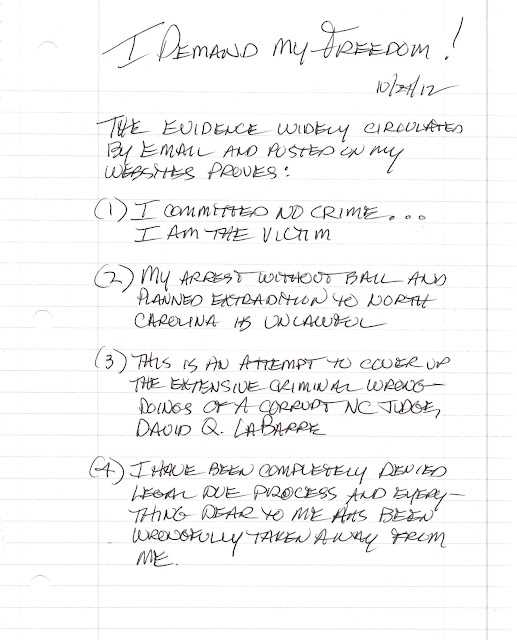 I DEMAND MY FREEDOM!
10/24/12
THE EVIDENCE WIDELY CIRCULATED
BY EMAIL AND POSTED ON MY
WEBSITES PROVES:
(1) I COMMITTED NO CRIME...
I AM THE VICTIM
(2) MY ARREST WITHOUT BAIL AND
PLANNED EXTRADITION TO NORTH
CAROLINA IS UNLAWFUL
(3) THIS IS AN ATTEMPT TO COVER UP
THE EXTENSIVE CRIMINAL WRONG-
DOINGS OF A CORRUPT NC JUDGE,
DAVID Q. LABARRE
(4) I HAVE BEEN COMPLETELY DENIED
LEGAL DUE PROCESS AND EVERY-
THING DEAR TO ME HAS BEEN
WRONGFULLY TAKEN AWAY FROM
ME.